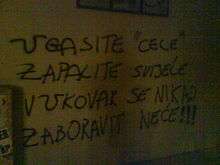 UGASITE "CECE"
ZAPALITE SVIJEĆE
VUKOVAR SE NIKAD
ZABORAVIT NEĆE!!!